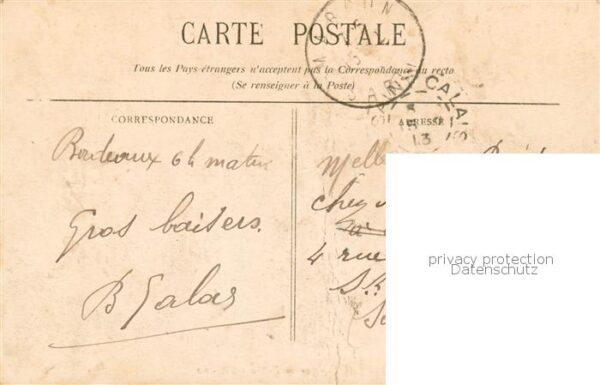 CARTE POSTALE
Tous les Pays étrangers n'acceptent pas la Correspondance au recto
(Se renseigner à la Poste)
CORRESPONDANCE
ADRESSE
Bordeaux 6h matin
Gros baisers.
B Galas
Melle
chez
à
4 rue
St
privacy protection
Datenschutz
CALAIS
13